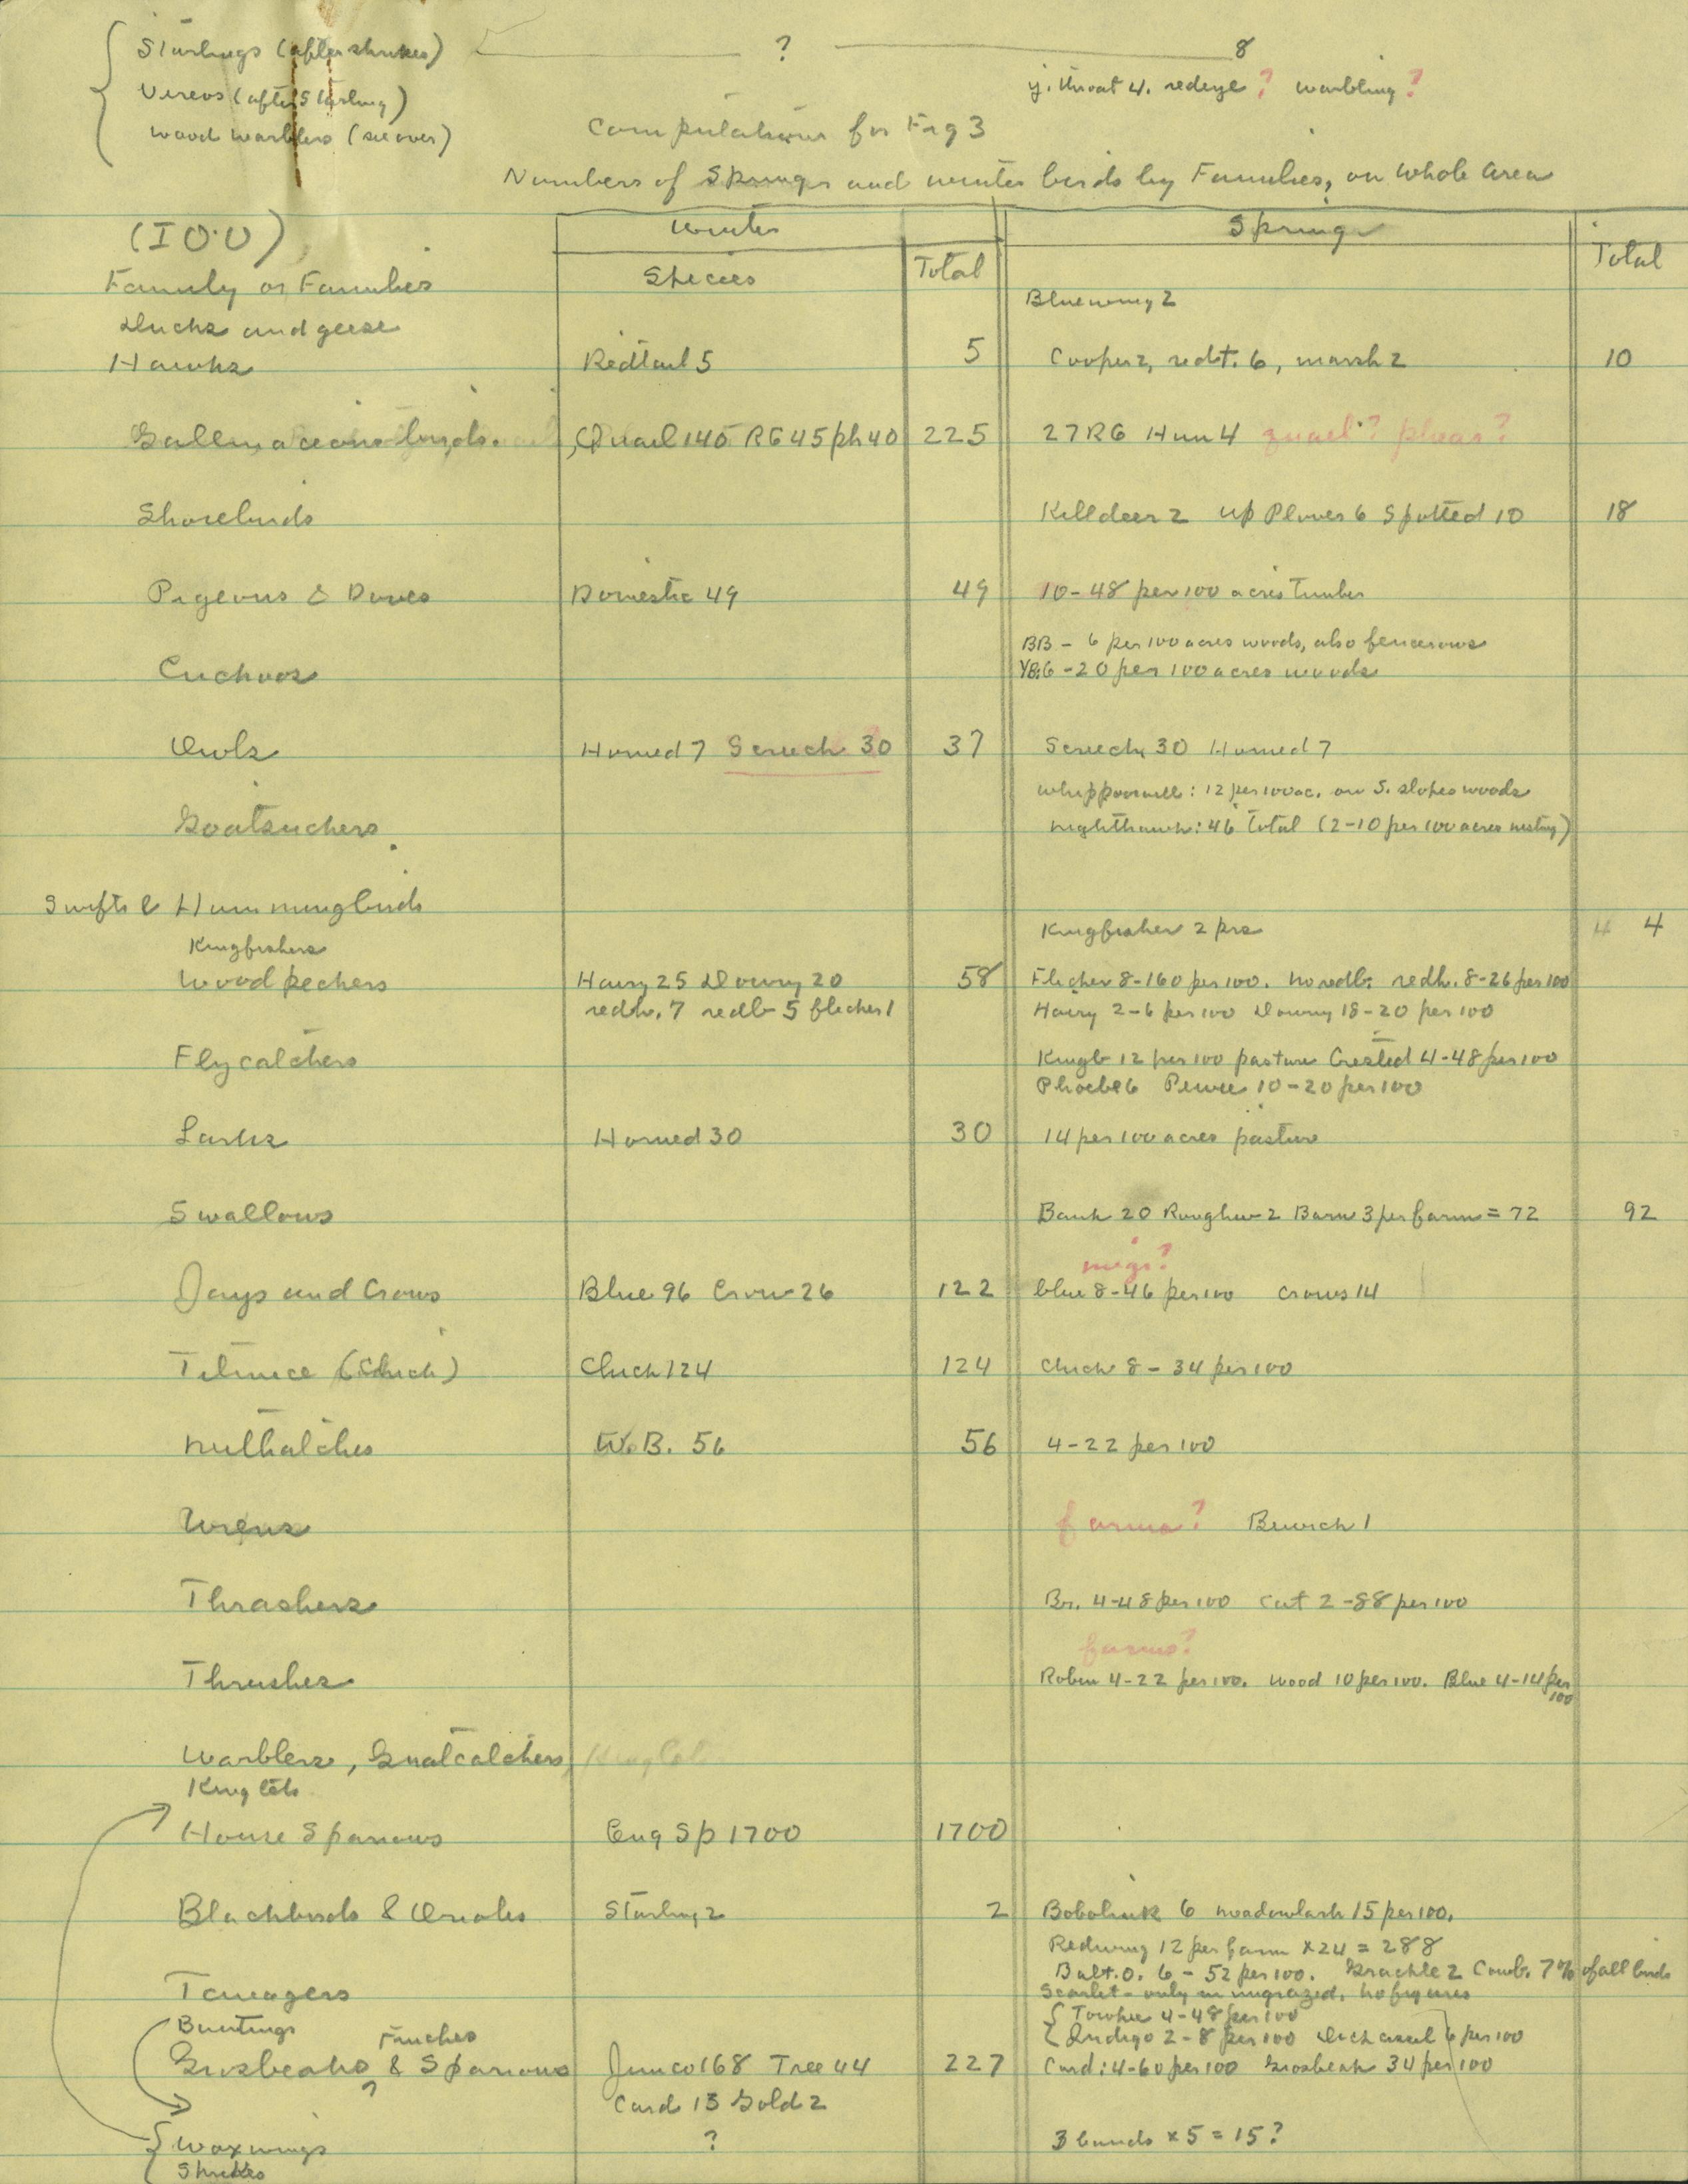 Starlings (after shrikes) ? 8
Vireos (after Starling) y. throat 4. redeye? warbling?
Wood warblers (see over)
Computations for Fig 3
Numbers of Spring and winter birds by Families, on whole area
(I O.U) Winter Spring
Family or Families Species Total Total
Ducks and geese Bluewing 2
Hawks Redtail 5 5 Cooper 2, redt. 6, marsh 2 10
Gallinaceous birds. Quail 140 RG 45 ph 40 225 27 RG Hun 4 quail? pheas?
Shorebirds Killdeer 2 up Plover 6 Spotted 10 18
Pigeons & Doves Domestic 49 49 10-48 per 100 acres timber
BB - 6 per 100 acres woods, also fencerows
Cuckoos YB 6-20 per 100 acres woods
Owls Horned 7 Screech 30 37 Screech 30 Horned 7
whippoorwill: 12 per 100 ac. on S. slopes woods
Goatsuckers nighthawk: 46 total (2-10 per 100 acres nesting)
Swifts & Hummingbirds
Kingfishers Kingfisher 2 prs 4 4
Woodpeckers Hairy 25 Downy 20 58 Flicker 8-160 per 100. no redb. redh. 8-26 per 100
redh. 7 redb 5 flicker 1 Hairy 2-6 per 100 Downy 18-20 per 100
Flycatchers Kingb 12 per 100 pasture Crested 4-48 per 100
Phoebe 6 Pewee 10-20 per 100
Larks Horned 30 30 14 per 100 acres pasture
Swallows Bank 20 Roughw 2 Barn 3 per farm = 72 92
migr?
Jays and Crows Blue 96 Crow 26 122 blue 8-46 per 100 crows 14
Titmice (Chick) Chick 124 124 Chick 8-34 per 100
Nuthatches W.B. 56 56 4-22 per 100
Wrens farms? Bewick 1
Thrashers Br. 4-48 per 100 Cat 2-88 per 100
farms?
Thrushes Robin 4-22 per 100. Wood 10 per 100. Blue 4-14 per 100
Warblers, Gnatcatchers, Kinglet
Kinglets
House Sparrows Eng Sp 1700 1700
Blackbirds & Orioles Starling 2 2 Bobolink 6 meadowlark 15 per 100.
Redwing 12 per farm x 24 = 288
Balt. O. 6-52 per 100. Grackle 2 Cowb. 7% of all birds
Tanagers Scarlet - only in ungrazed. no figures
Buntings Towhee 4-48 per 100
Finches Indigo 2-8 per 100 Dickcissel 6 per 100
Grosbeaks, & Sparrows Junco 168 Tree 44 227 Card: 4-60 per 100 Grosbeak 34 per 100
Card 13 Gold 2
Waxwings ? 3 bunds x 5 = 15?
Shrikes